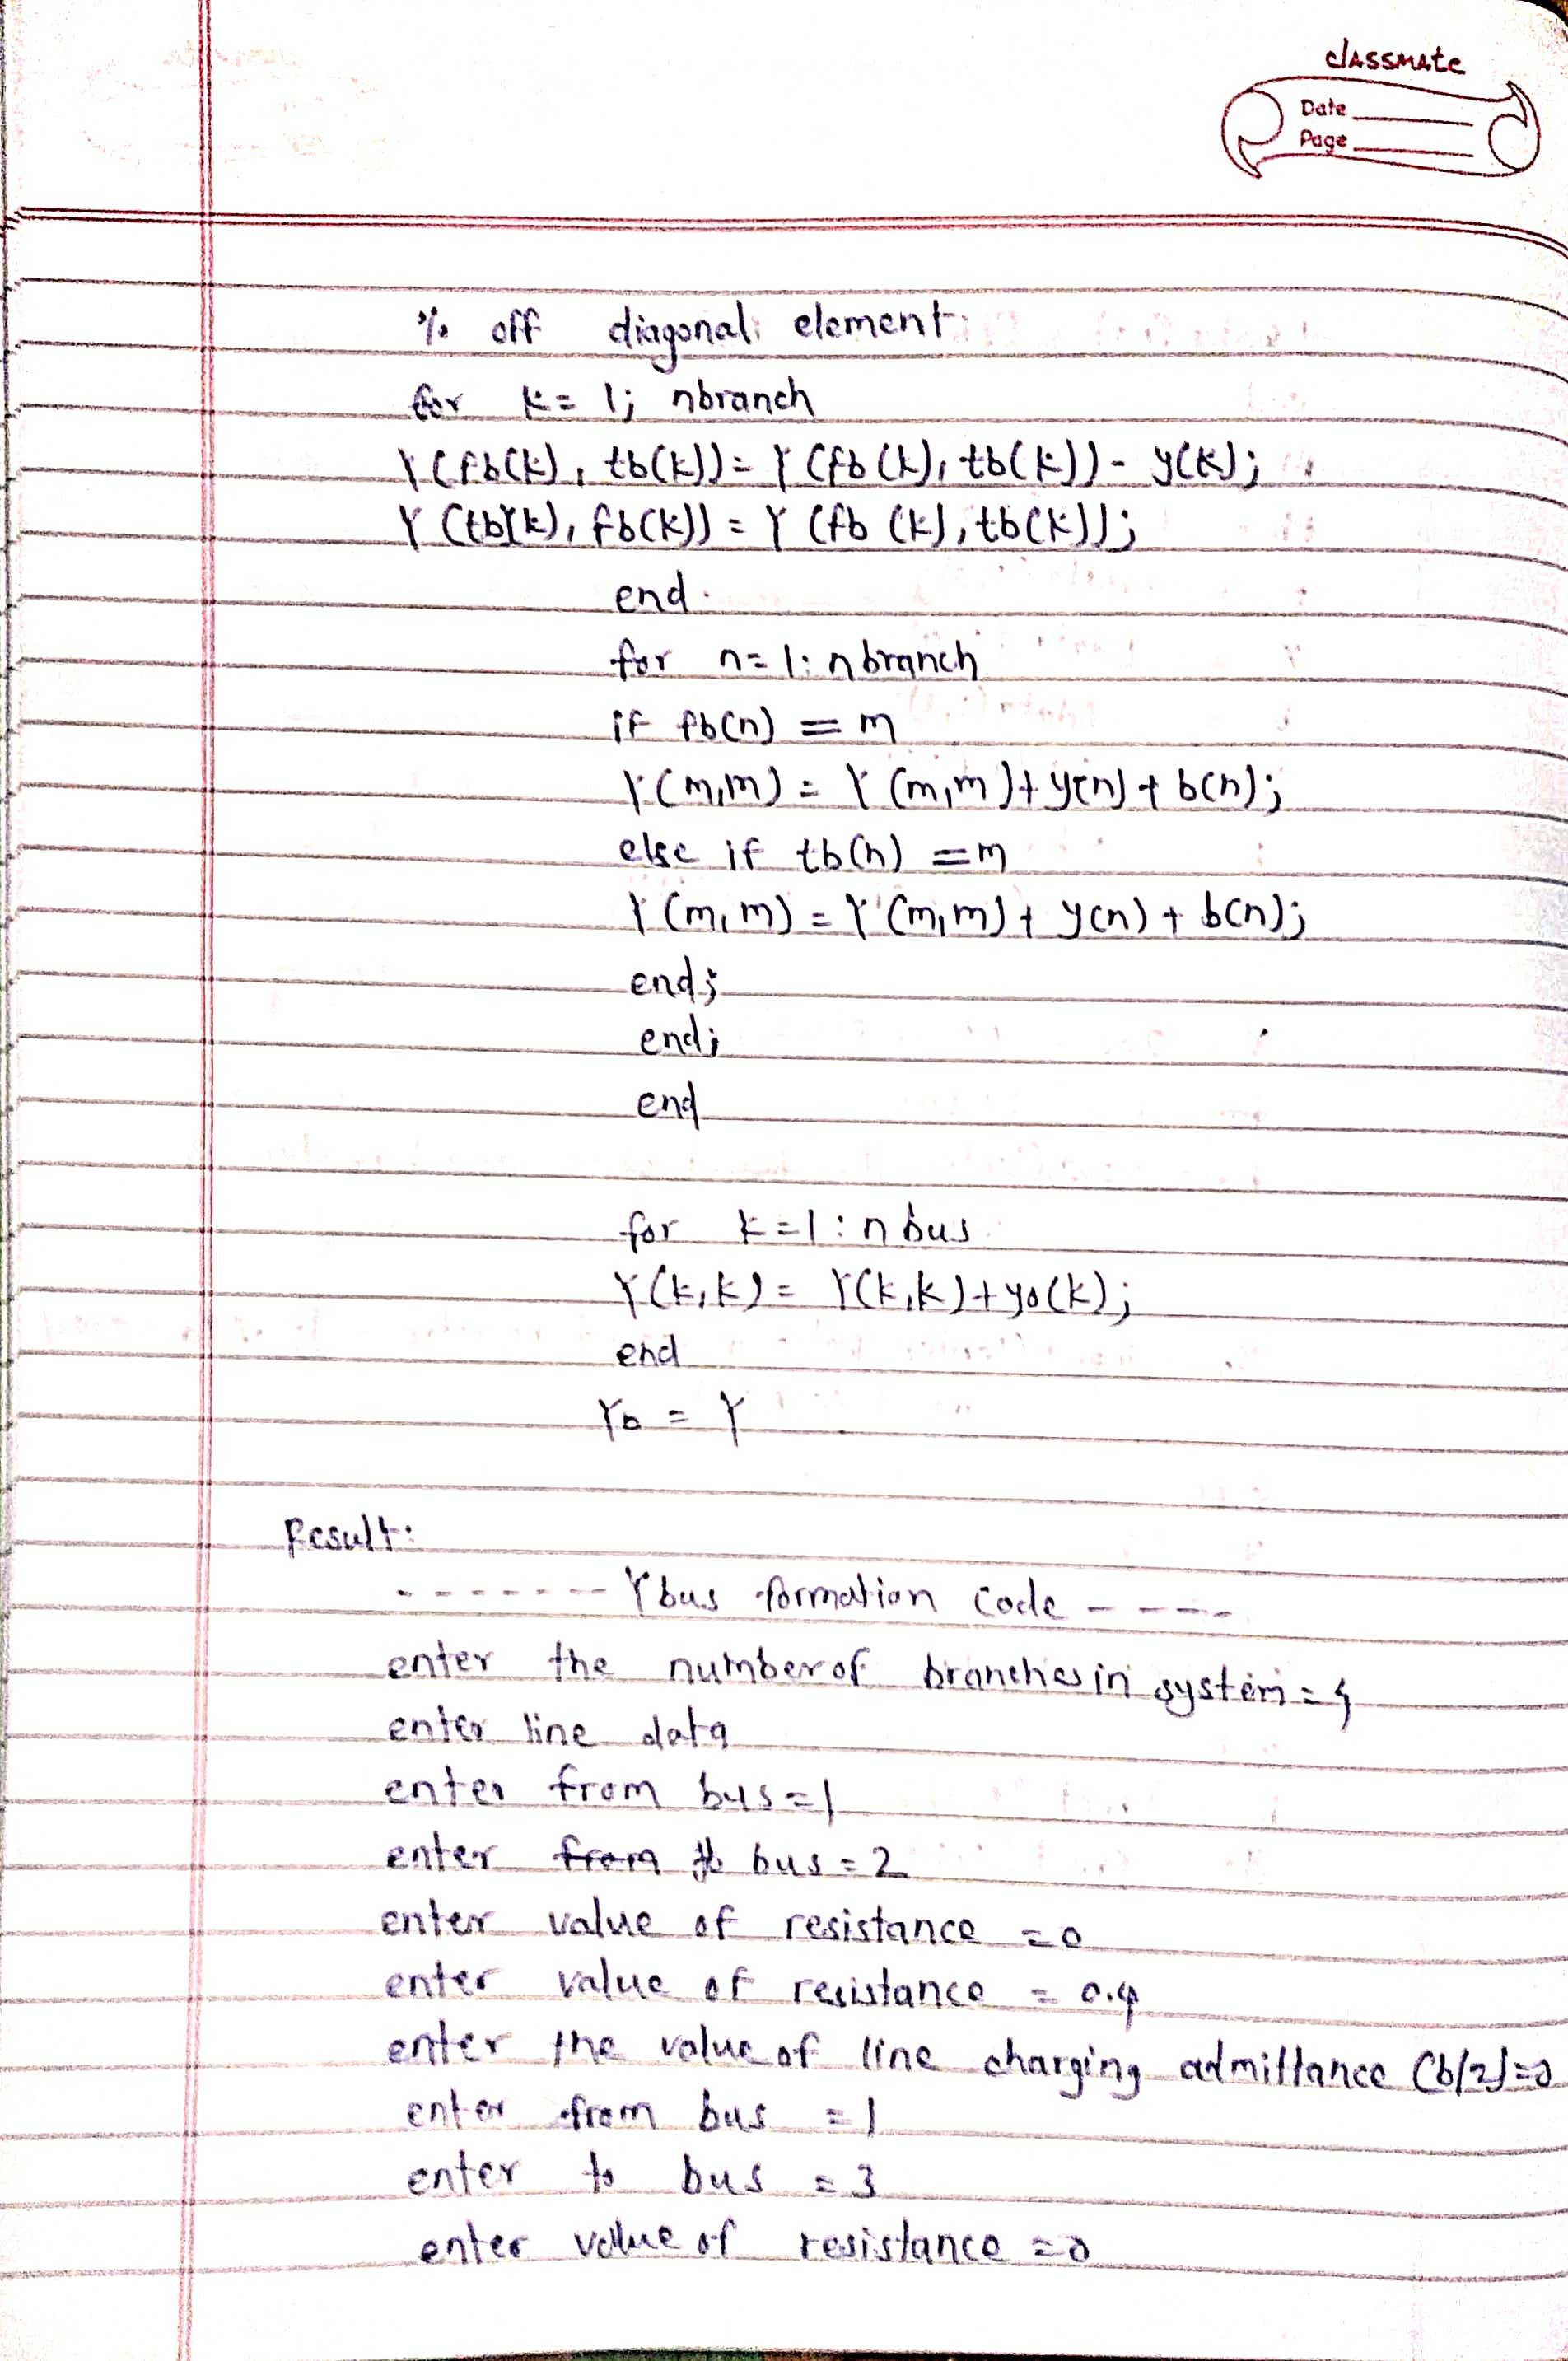 classmate
Date
Page
% off diagonal element
for k = 1; nbranch
Y(fb(k), tb(k)) = Y(fb(k), tb(k)) - y(k);
Y(tb(k), fb(k)) = Y(fb(k), tb(k));
end
for n = 1: nbranch
if fb(n) == m
Y(m,m) = Y(m,m) + y(n) + b(n);
else if tb(n) == m
Y(m,m) = Y(m,m) + y(n) + b(n);
end;
end;
end
for k = 1 : nbus
Y(k,k) = Y(k,k) + yo(k);
end
Yb = Y
Result:
------- Y bus formation code -----
enter the number of branches in system = 4
enter line data
enter from bus = 1
enter from to bus = 2
enter value of resistance = 0
enter value of resistance = 0.4
enter the value of line charging admittance (b/2) = 0
enter from bus = 1
enter to bus = 3
enter value of resistance = 0